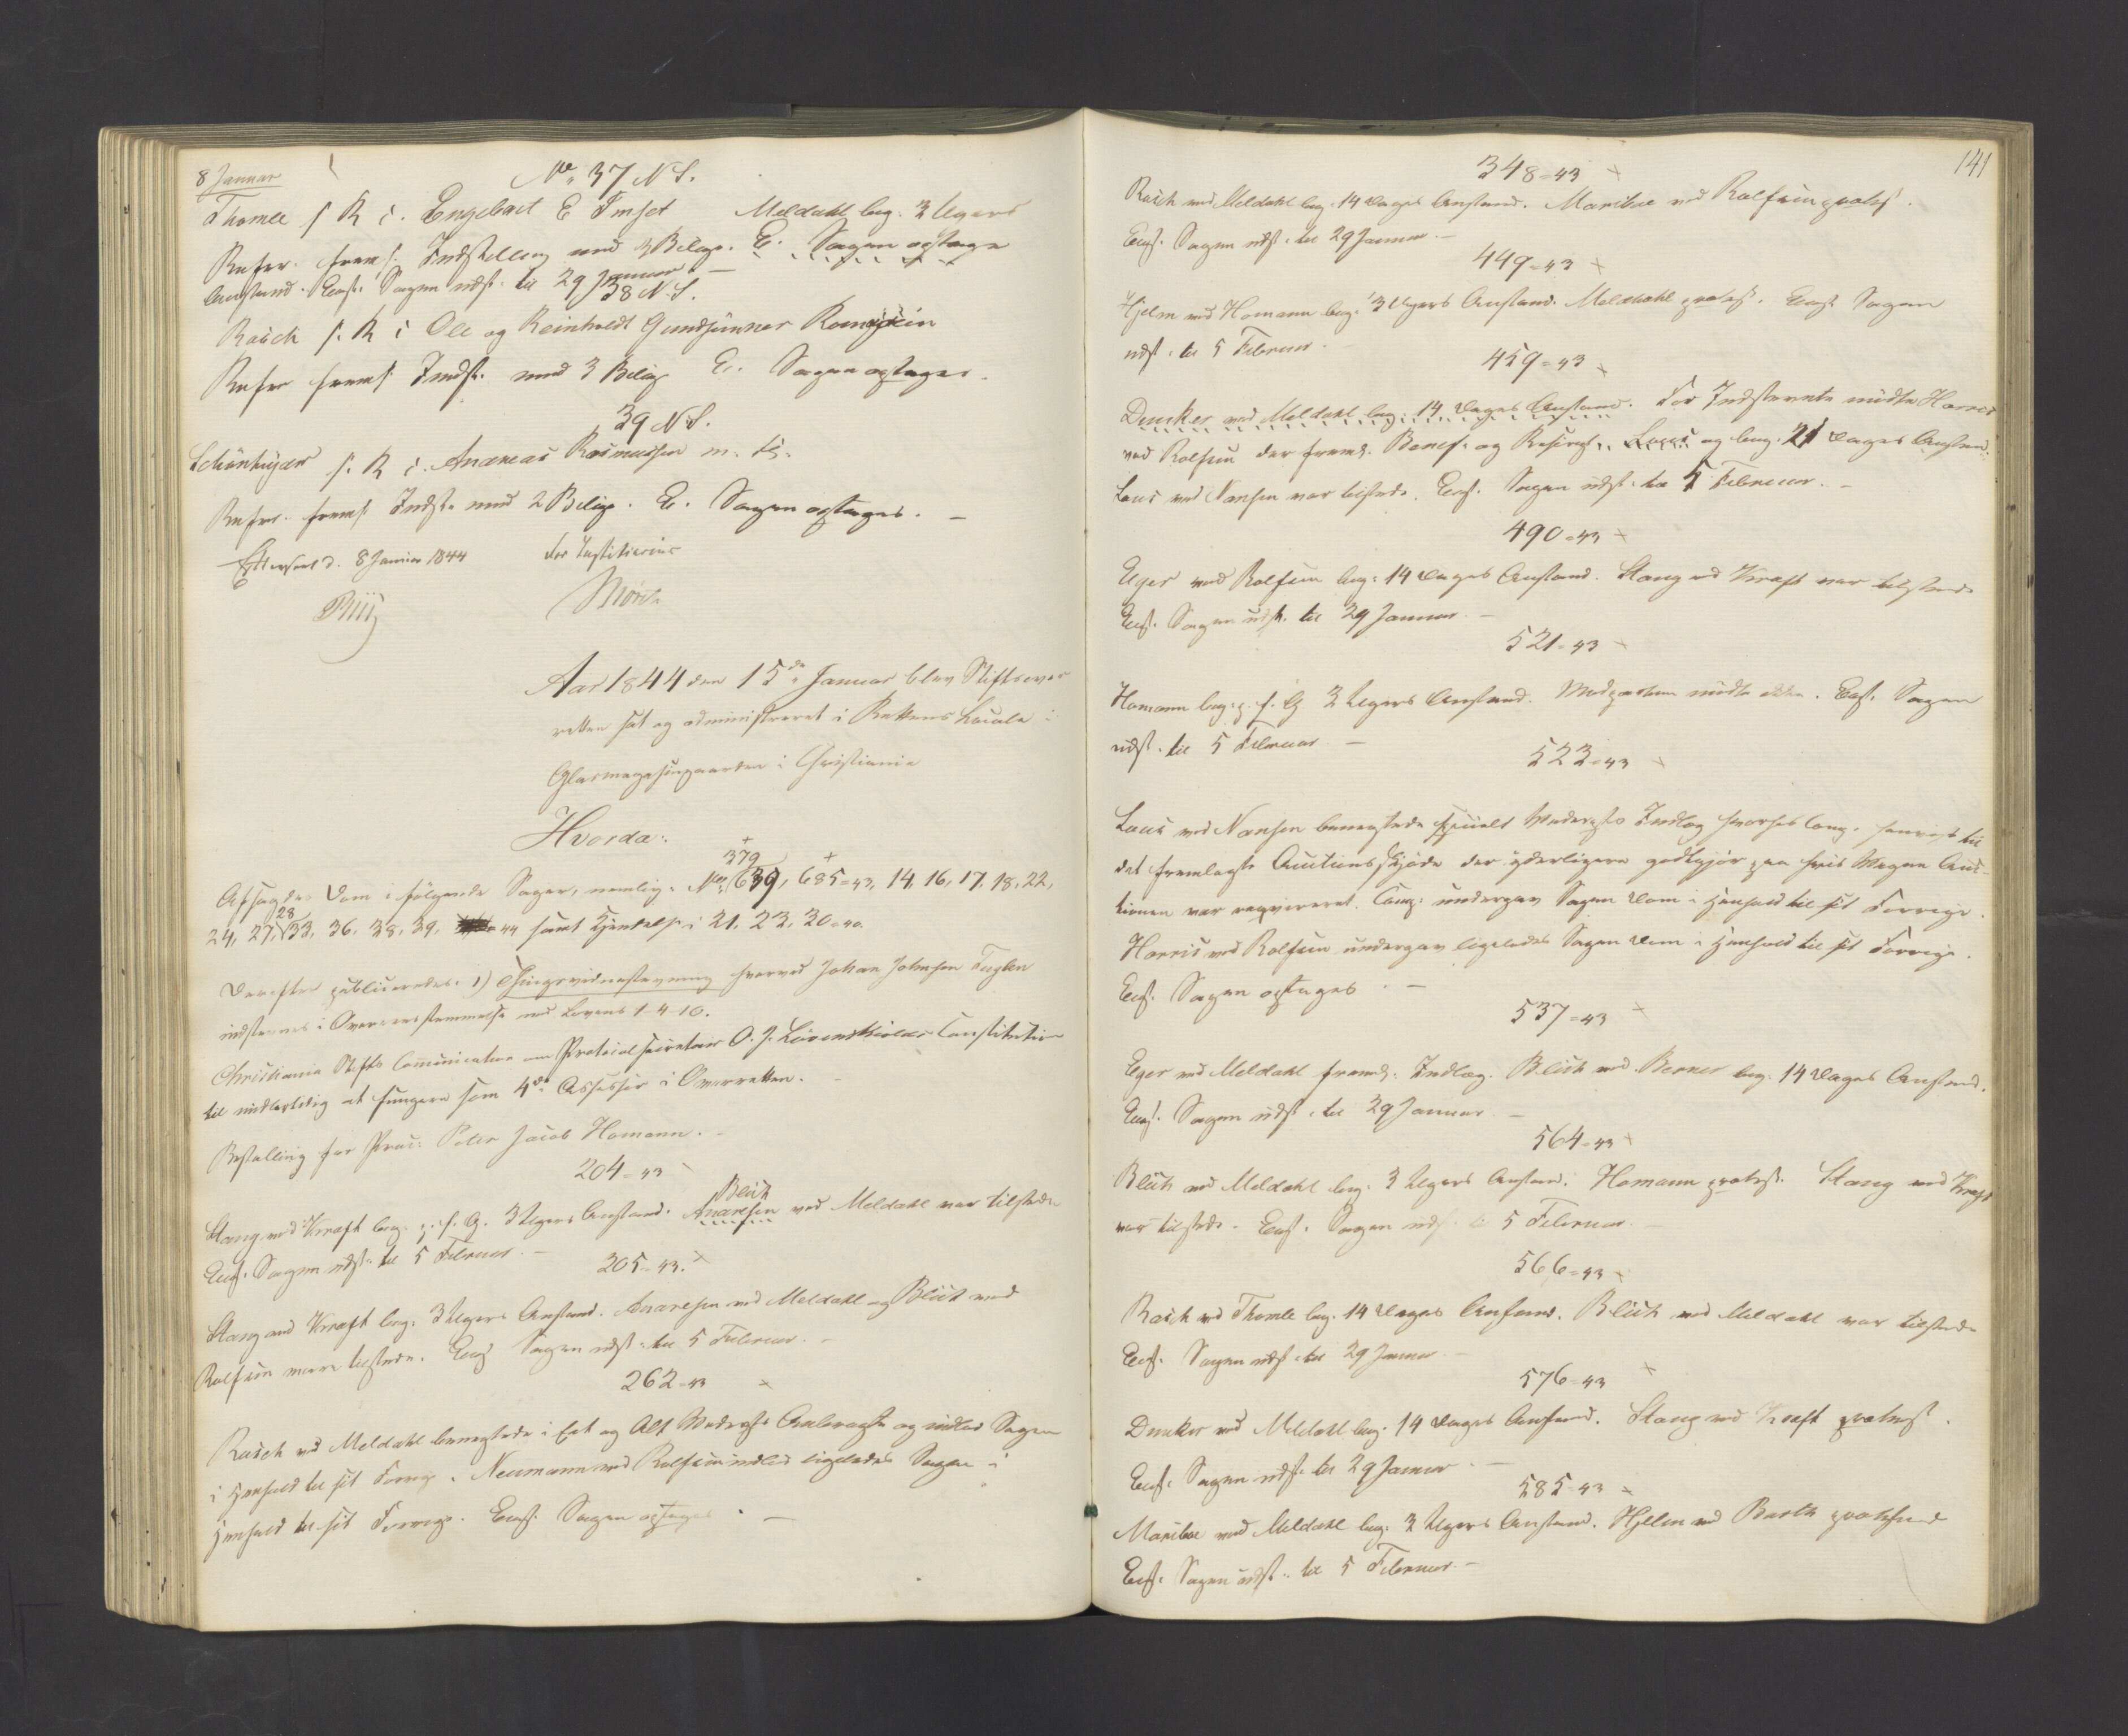 8 Januar
No. 37 N S.
Thomle f. R i. Engebret E Imset Meldahl beg. 3 Ugers
Refer. freml. Indstilling med 4 Bilage. E. Sagen optages
Anstand. Eragt. Sagen udst. til 29 Januar –
38 N. S.
Rasch f. R i Ole og Reinholdt Gundsønner
Refer freml. Indst. med 3 Bilag E. Sagen optages.
39 N. S.
Schönheyder f. R i. Andreas Rasmussen m. fl.
Refer. freml. Indst. med 2 Bilage. E. Sagen optages. –
Efterseet d. 8 Januar 1844 for Justitiarius
Mörch
Aar 1844 den 15de Januar blev Stiftsover
retten sat og administreret i Rettens Locale i
Glasmagasingaarden i Christiania
Hvorda:
379
Afsagdes Dom i følgende Sager, nemlig: No. 639, 685=43, 14, 16, 17, 18, 22,
28
24, 27, 33, 36, 38, 39, 44 samt Kjendelse i 21, 23, 30=40.
Derefter publiceredes: 1) Thingsvidnestevning hvorved Johan Johnsen Fuglen
indstevnes i Overeensstemmelse med Lovens 1-4-10.
Christiania Stifts Communication om Protocolsecretair O. J. Løvenskiolds Constitution
til midlertidig at fungere som 4de Assessor i Overretten. –
Bestalling for Proc: Peter Jacob Homann. –
204=43
Blich
Stang ved Kraft beg. p. f. G. 3 Ugers Anstand. Anaresen ved Meldahl var tilstede
Eragt. Sagen udst. til 5 Februar. –
205=43. x
Stang ved Kraft beg. 3 Ugers Anstand. Anaresen ved Meldahl og Blich ved
Rolfsen vare tilstede. Eragt Sagen udst. til 5 Februar. –
262=43 x
Rasch ved Meldahl benegtede i Eet og Alt Modpts Anbragte og indlod Sagen
i Henhold til sit Forrige. Neumann ved Rolfsen indlod ligeledes Sagen i
Henhold til sit Forrige. Eragt. Sagen optages. –
141
348=43 x
Rasch ved Meldahl beg. 14 Dages Anstand. Maribae ved Rolfsen protest.
Eragt. Sagen udst. til 29 Januar –
449=43 x
Hjelm ved Homann beg. 3 Ugers Anstand. Meldahl protest. Eragt. Sagen
udst. til 5 Februar.
459=43 x
Dunker ved Meldahl beg. 14 Dages Anstand. For Indstevnte mødte Harris
ved Rolfsen der freml. Benef. og og beg. 21 Dages Anstand.
Lous ved Nansen var tilstede. Eragt. Sagen udst. til 5 Februar. –
490=43 x
Eger ved Rolfsen beg. 14 Dages Anstand. Stang ved Kraft var tilstede
Eragt. Sagen udst. til 29 Januar. –
521=43
Homann beg. p. f. G 3 Ugers Anstand. Modparten mødte ikke. Eragt. Sagen
udst. til 5 Februar –
523=43
Lous ved Nansen benegtede specielt Modpts Indlæg hvorhos Comp. henviste til
det fremlagte Auctionsskjøde der yderligere godtgjør paa hvis Vegne Auc-
tionen var reqvireret. Comp: undergav Sagen Dom i Henhold til sit Forrige.
Harris ved Rolfsen undergav ligeledes Sagen Dom i Henhold til sit Forrige.
Eragt. Sagen optages. –
537=43 x
Eger ved Meldahl freml. Indlæg. Blich ved Berner beg. 14 Dages Anstand.
Eragt. Sagen udst. til 29 Januar –
564=43 x
Blich ved Meldahl beg. 3 Ugers Anstand. Homann protest. Stang ved Kraft
var tilstede. Eragt. Sagen udst. til 5 Februar. –
566=43 x
Rasch ved Thomle beg. 14 Dages Anstand. Blich ved Meldahl var tilstede
Eragt. Sagen udst. til 29 Januar –
576=43 x
Dunker ved Meldahl beg. 14 Dages Anstand. Stang ved Kraft protest.
Eragt. Sagen udst. til 29 Januar. –
585=43 x
Maribae ved Meldahl beg. 3 Ugers Anstand. Hjelm ved Barth protesterede
Eragt. Sagen udst. til 5 Februar. –